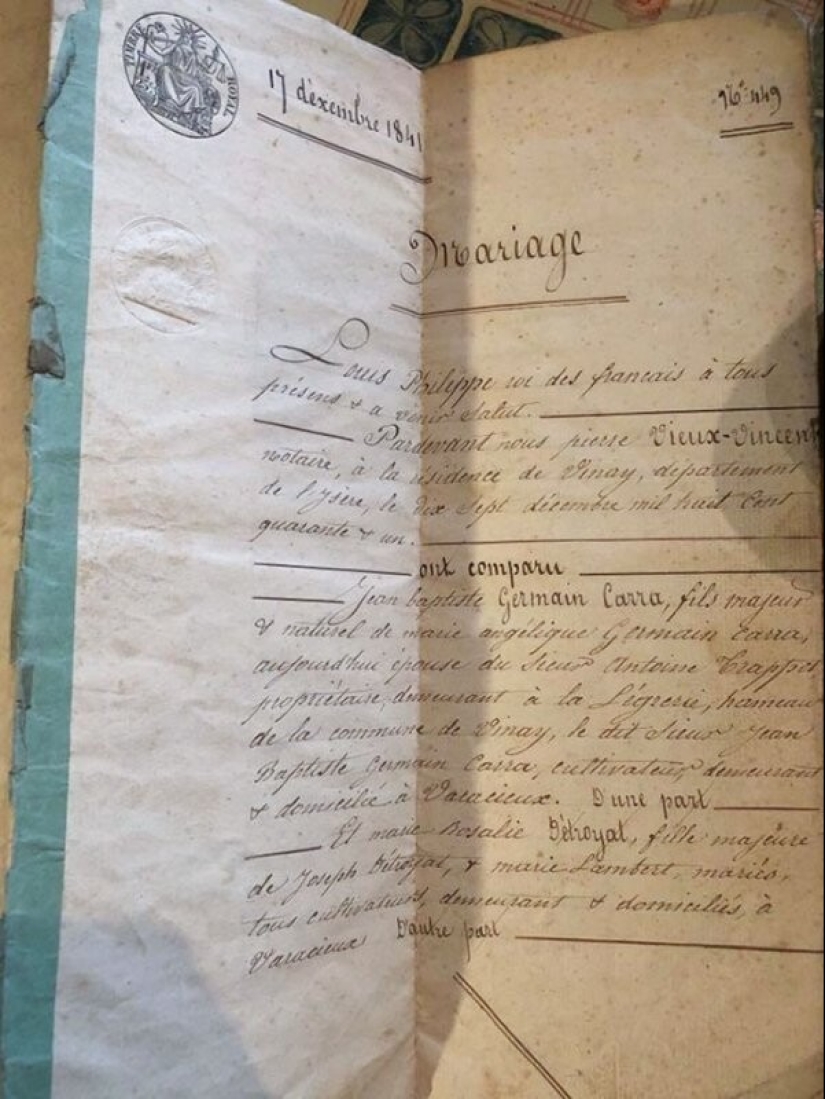 TIMBRE ROYAL
17 décembre 1841
N° 449
Mariage
Louis Philippe roi des français à tous
présens & a venir Salut.
Pardevant nous pierre Vieux-Vincent
notaire, à la résidence de Vinay, département
de l'ysère, le dix sept décembre mil huit Cent
quarante & un.
ont comparu
Jean baptiste Germain Carra, fils majeur
& naturel de marie angélique Germain Carra,
aujourd'hui épouse du Sieur Antoine Trappot
propriétaire, demeurant à la Légrerie, hameau
de la commune de Vinay, le dit Sieur Jean
Baptiste Germain Carra, cultivateur, demeurant
& domicilié à Varacieux. D'une part
Et marie Rosalie Détroyat, fille majeure
de Joseph Détroyat, & marie Lambert, mariés,
tous cultivateurs, demeurant & domiciliés, à
Varacieux D'autre part